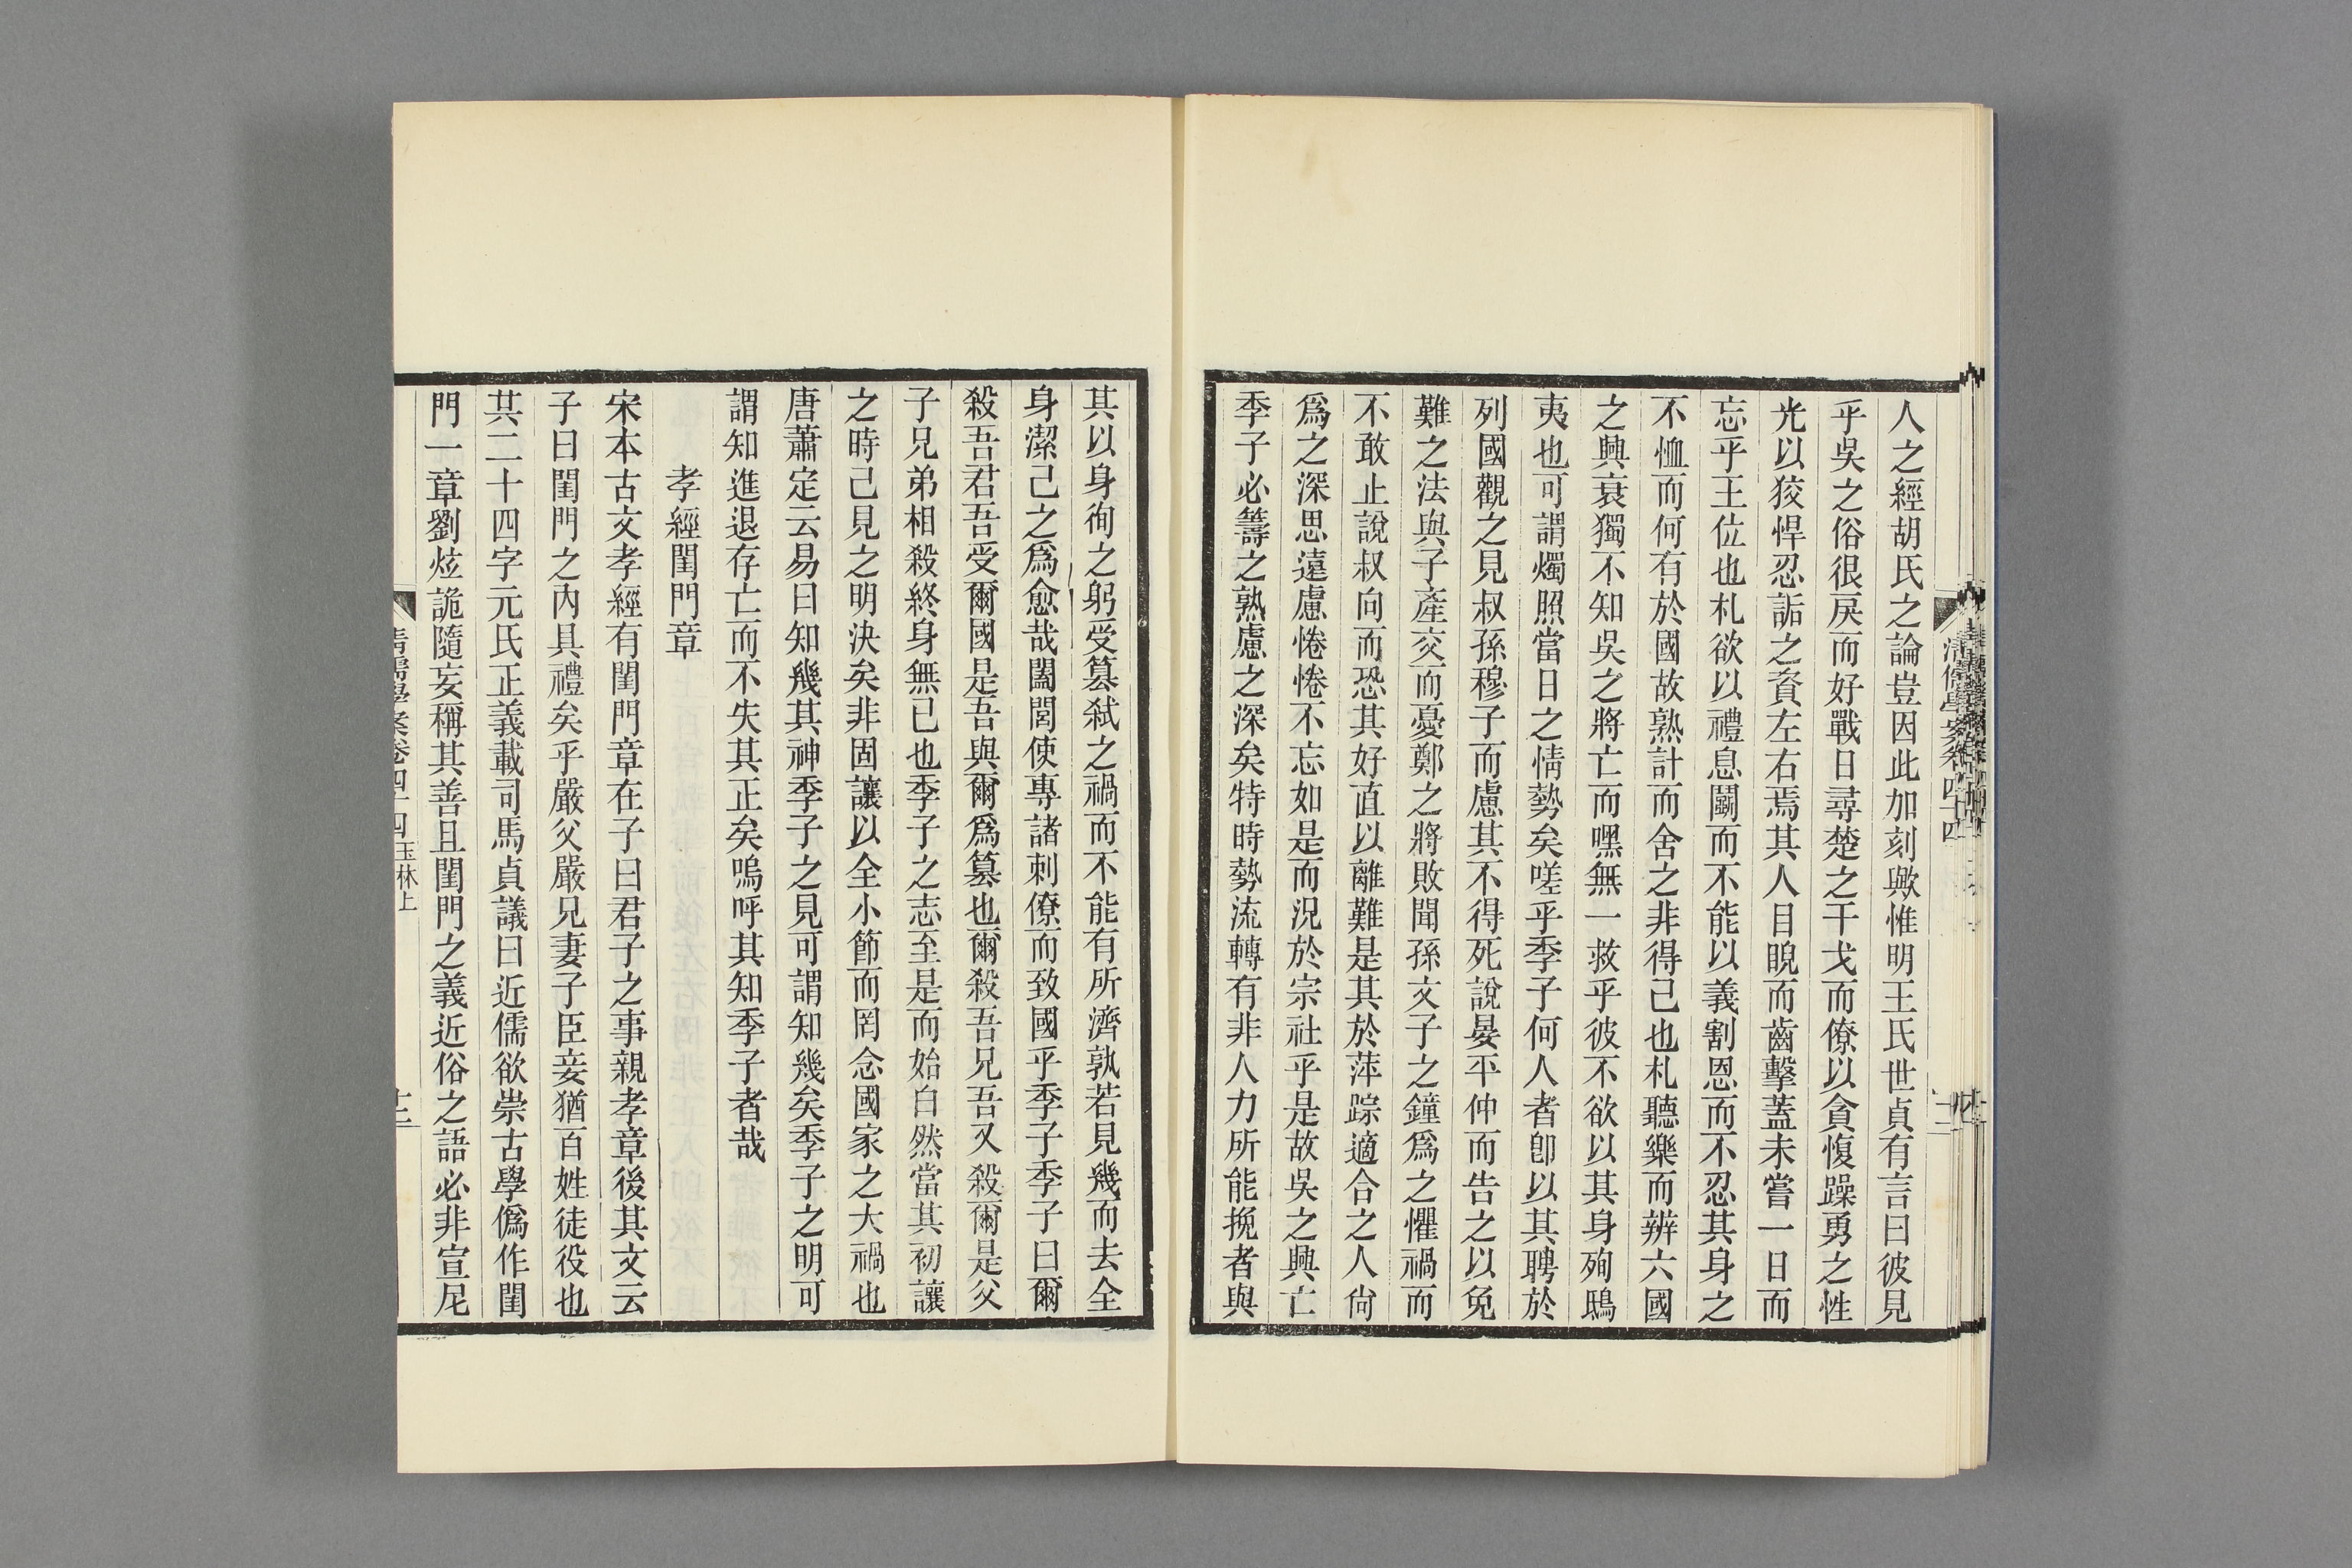 人之經胡氏之論豈因此加刻歟惟明王氏世貞有言曰彼見
乎吳之俗很戾而好戰日尋楚之干戈而僚以貪愎躁勇之性
光以狡悍忍詬之資左右焉其人目睨而齒擊蓋未嘗一日而
忘乎王位也札欲以禮息鬬而不能以義割恩而不忍其身之
不恤而何有於國故熟計而舍之非得己也札聽樂而辨六國
之興衰獨不知吳之將亡而嘿無一救乎彼不欲以其身殉鴟
夷也可謂燭照當日之情勢矣嗟乎季子何人者卽以其聘於
列國觀之見叔孫穆子而慮其不得死說晏平仲而告之以免
難之法與子產交而憂鄭之將敗聞孫文子之鐘爲之懼禍而
不敢止說叔向而恐其好直以離難是其於萍踪適合之人尙
爲之深思遠慮惓惓不忘如是而況於宗社乎是故吳之興亡
季子必籌之熟慮之深矣特時勢流轉有非人力所能挽者與
其以身徇之躬受篡弒之禍而不能有所濟孰若見幾而去全
身潔己之爲愈哉闔閭使專諸刺僚而致國乎季子季子曰爾
殺吾君吾受爾國是吾與爾爲篡也爾殺吾兄吾又殺爾是父
子兄弟相殺終身無已也季子之志至是而始白然當其初讓
之時己見之明決矣非固讓以全小節而罔念國家之大禍也
唐蕭定云易曰知幾其神季子之見可謂知幾矣季子之明可
謂知進退存亡而不失其正矣嗚呼其知季子者哉
孝經閨門章
宋本古文孝經有閨門章在子曰君子之事親孝章後其文云
子曰閨門之內具禮矣乎嚴父嚴兄妻子臣妾猶百姓徒役也
共二十四字元氏正義載司馬貞議曰近儒欲崇古學僞作閨
門一章劉炫詭隨妄稱其善且閨門之義近俗之語必非宣尼
清儒學案卷四十四玉林上
十二